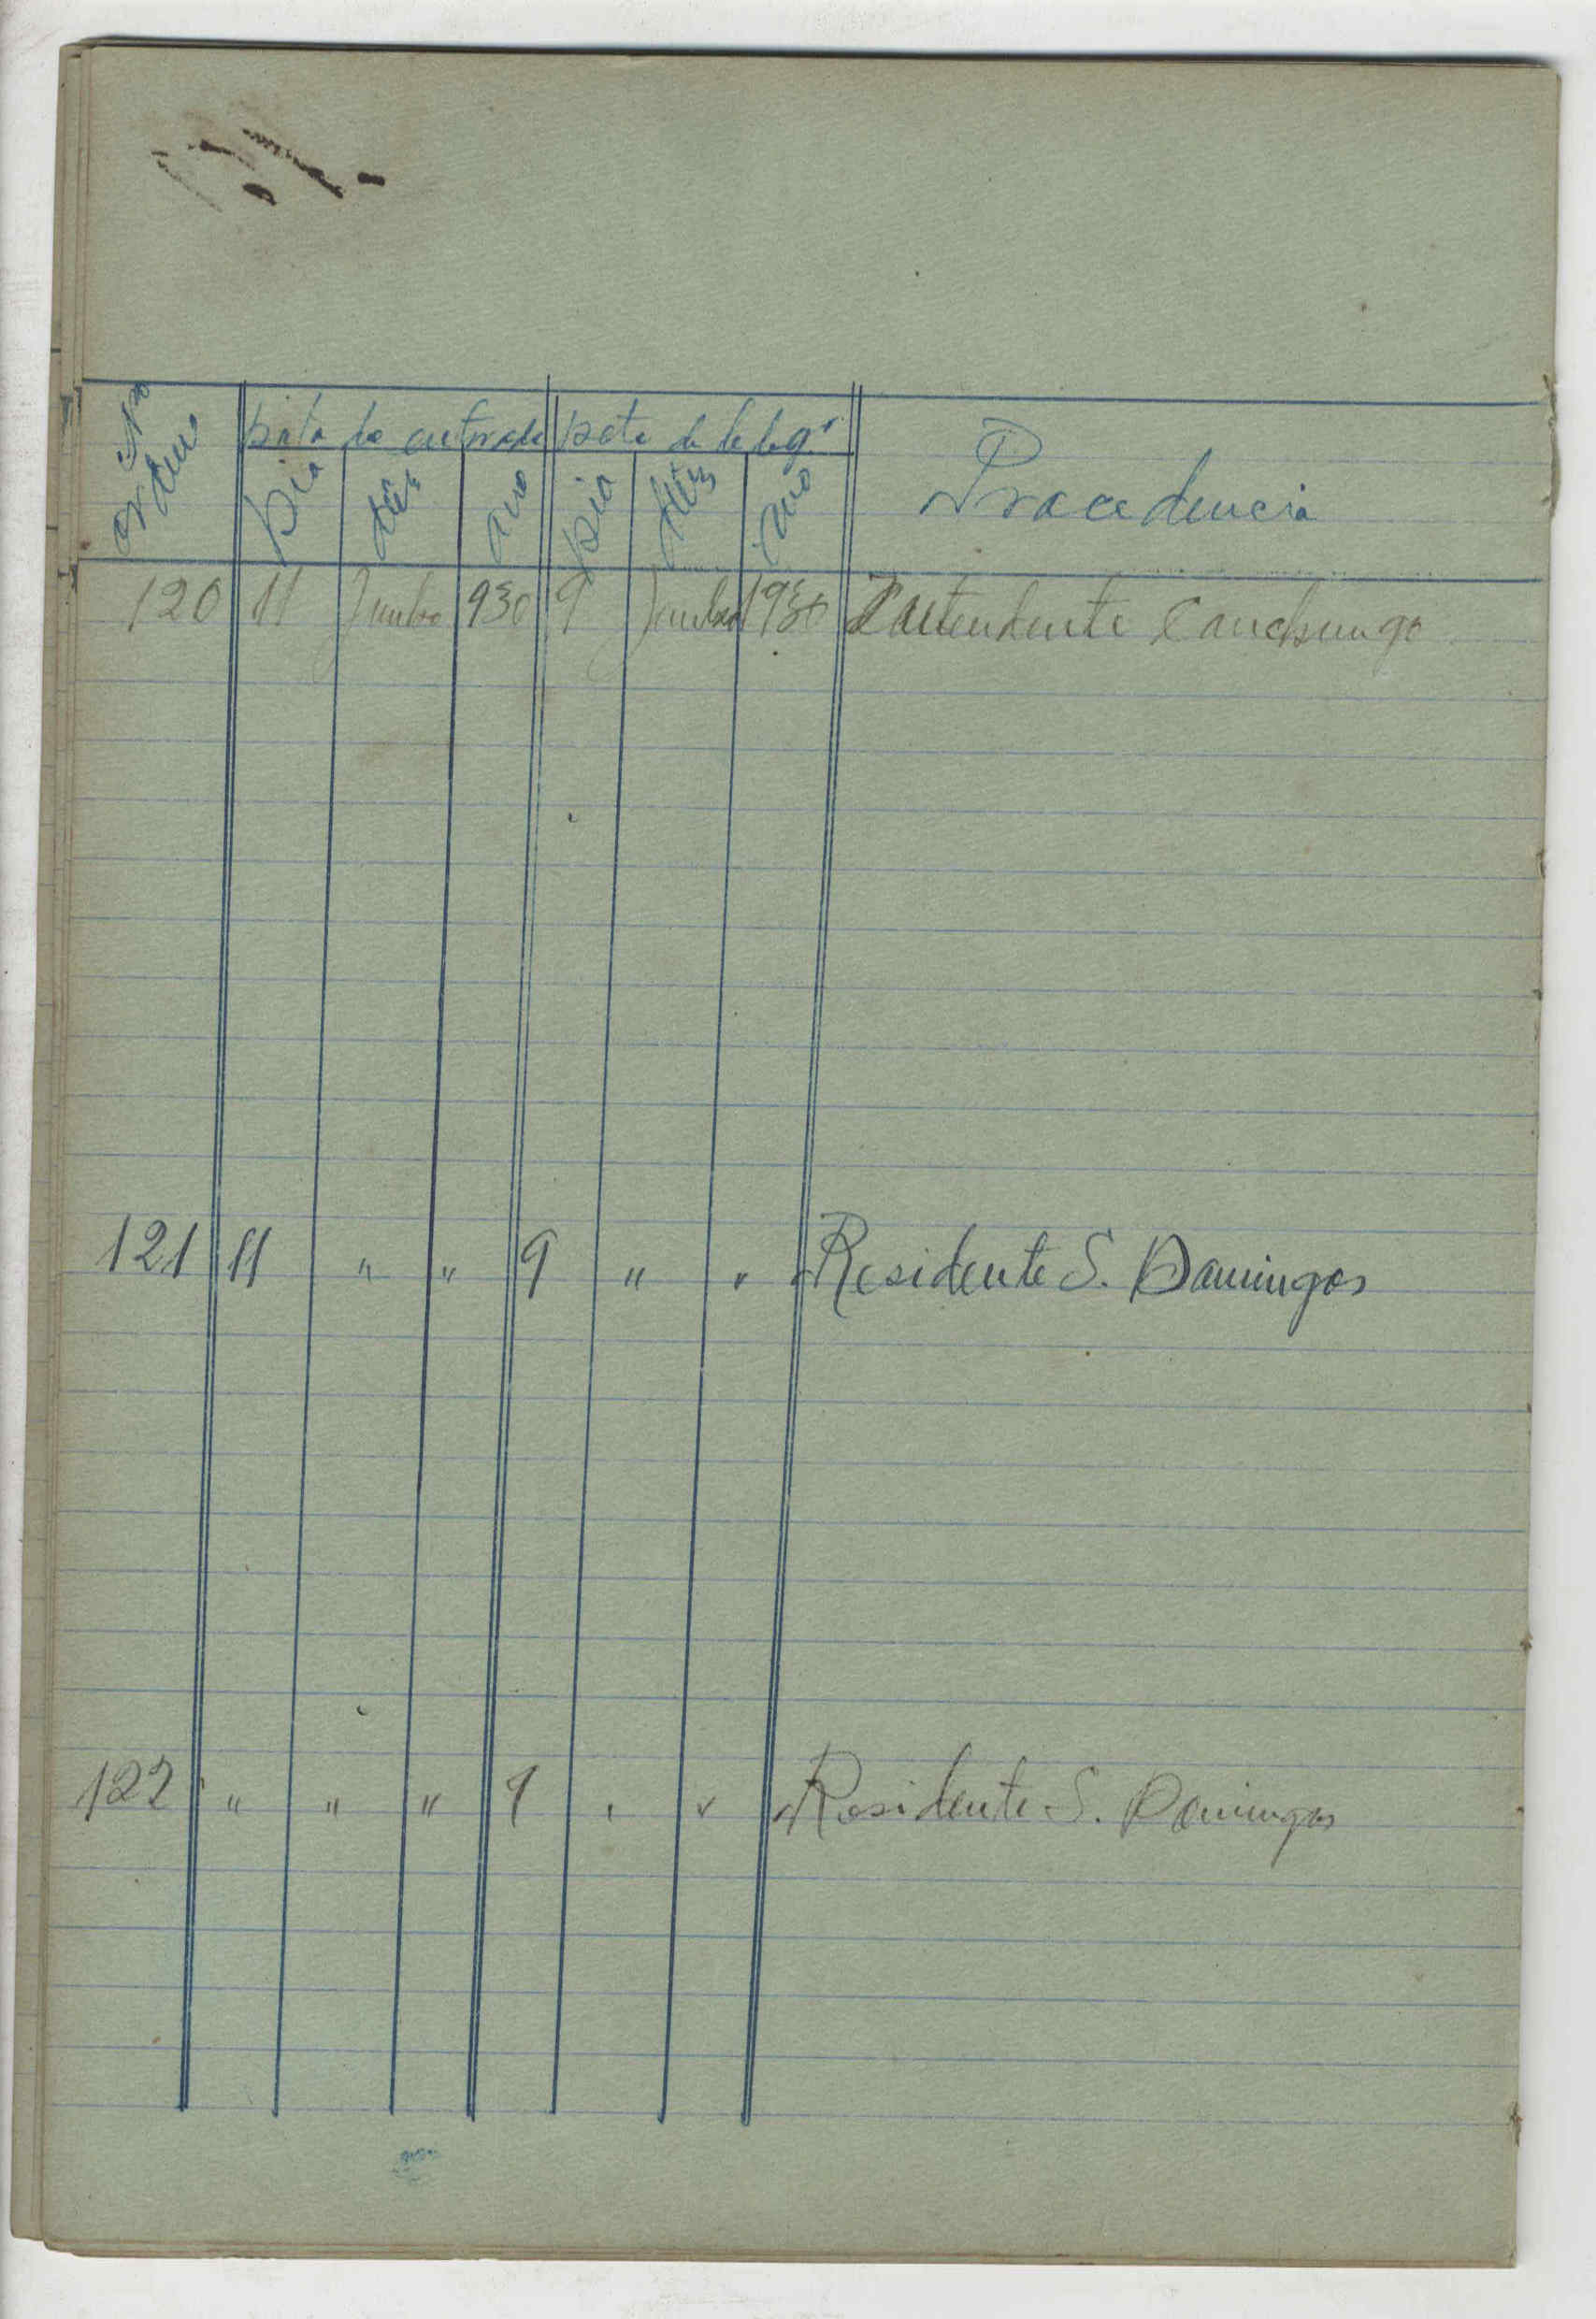 Nº ordem
Data da entrada Data do teleg.
Dia Mês Ano Dia Mês Ano Procedencia
120 11 Junho 930 9 Junho 1930 Intendente Canchungo
121 11 " " 9 " " Residente S. Domingos
122 " " " 9 " " Residente S. Domingos